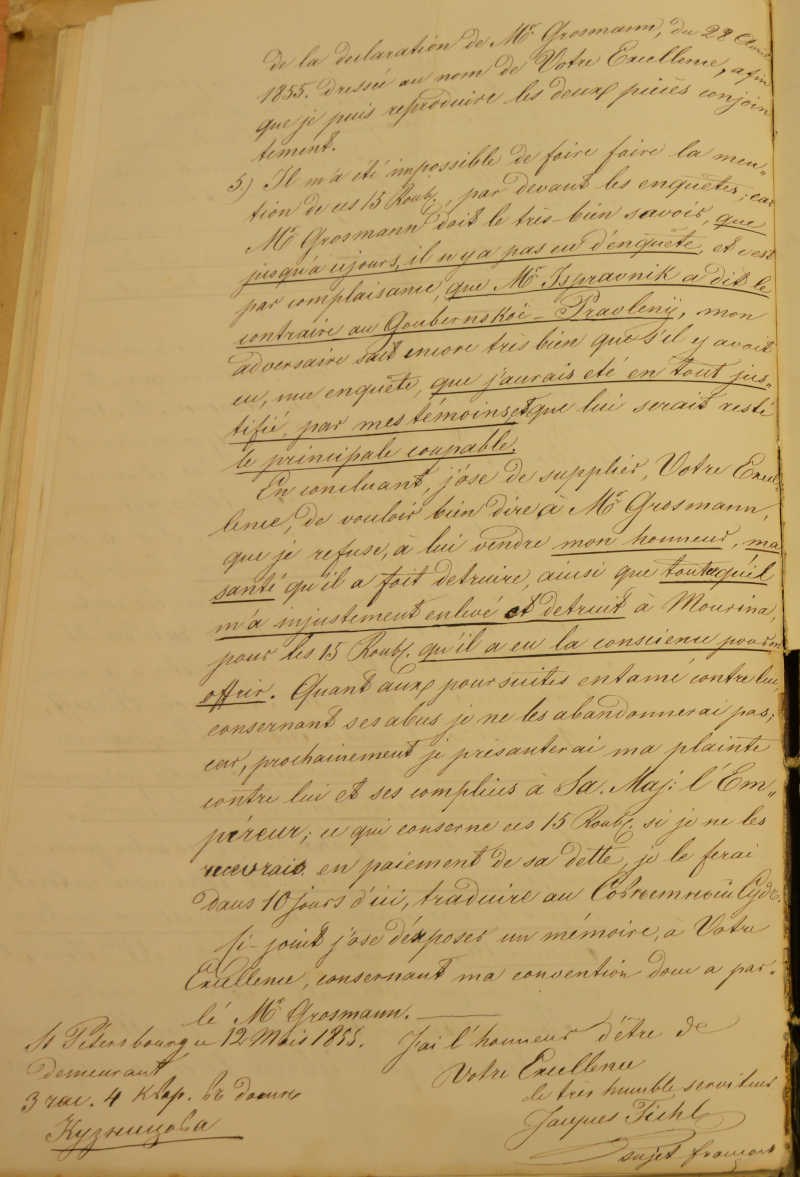 de la declaration de Mr Grosmann, du 28 Avril
1855. dressée au nom de Votre Excellence, afin
que je puis reproduire les deux pièces conjoin
tement.
5) Il m'a été impossible de faire faire la men„
tion de ces 15 Roubl., par devant les enquêtes; car
Mr Grosmann doit le très-bien savoir, que
jusqu'a cejours, il n'y a pas eu d'enquête, et c'est
par complaisance, que Mr Ispravnik a dit le
contraire au Goubernskoé-Pravlenij, mon
adversaire sait encore très bien que s'il y avoit
eu, une enquête, que j'aurais été en tout jus„
tifié, par mes témoins et que lui serait resté
le principale coupable.
En concluant, j'ose de supplier, Votre Excel„
lence, de vouloir bien dire à Mr Grosmann,
que je refuse, à lui vendre mon honneur, ma
santé qu'il a fait detruire, ainsi que toutcequ'il
m'a injustement enlevé et detruit à Mourina,
pour les 15 Roubl. qu'il a eu la conscience pour
offrir. Quant aux poursuites entamé contre lui,
consernant ses abus je ne les abandonnerai pas;
car, prochainement je présanterai ma plainte
contre lui et ses complices à Sa. Maj: l'Em„
péreur; ce qui conserne ces 15 Roubl. si je ne les
recevrais en paiement de sa dette, je le ferai
dans 10 jours d'ici, traduire au Совѣстной Судъ.
Ci-joint j'ose d'éxposer un mémoire, à Votre
Excellence, consernant ma convention dont a par„
lé Mr Grosmann.
St Pétersbourg ce 12 Mais 1855.
J'ai l'honneur d'être de
demeurant
Votre Excellence
3 час. 4 Квар. въ домѣ
le très humble serviteur
Кузнецова
Jacques Fichl
sujet français